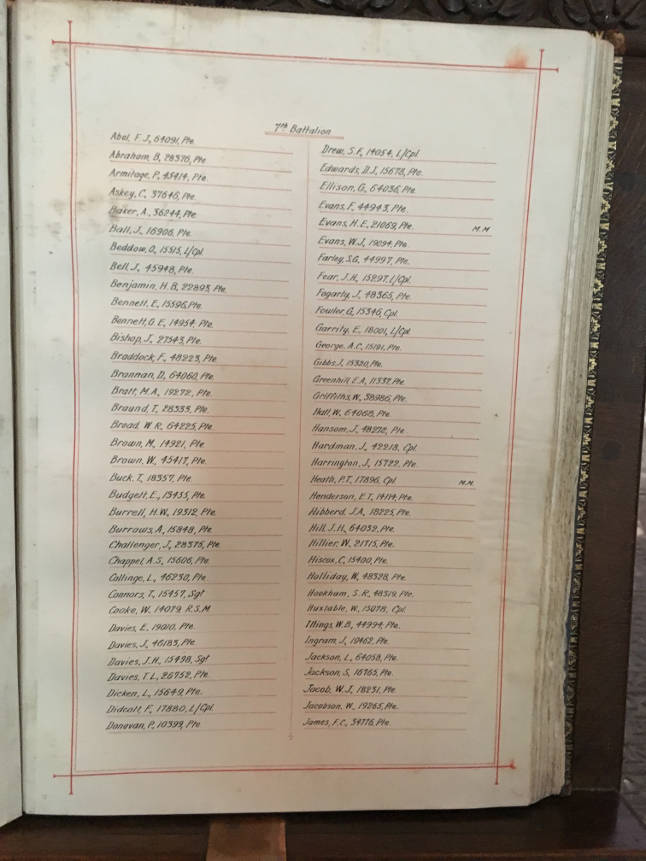 7th Battalion
Abel, F. J., 64091, Pte.
Abraham, B, 28376, Pte.
Armitage, P, 45414, Pte.
Askey, C, 37646, Pte.
Baker, A., 36244, Pte
Ball, J., 16906, Pte.
Beddow, O, 15515, L/Cpl.
Bell, J., 45948, Pte.
Benjamin, H. B, 22893, Pte.
Bennett, E, 15596, Pte.
Bennett, G. E, 14954, Pte.
Bishop, J., 27543, Pte.
Braddock, F., 48223, Pte
Brannan, D, 64060, Pte.
Bratt, M.A., 19272, Pte.
Braund, T, 28333, Pte.
Bread, W. R, 64225, Pte.
Brown, M, 14921, Pte.
Brown, W, 45417, Pte.
Buck, T, 18357, Pte.
Budgett, E., 13455, Pte.
Burrell, H.W., 19312, Pte.
Burrows, A, 15848, Pte.
Challenger, J., 28375, Pte.
Chappel, A. S, 15606, Pte.
Collinge, L., 46230, Pte.
Connors, T, 15457, Sgt
Cooke, W. 14079, R. S. M
Davies, E., 19010, Pte.
Davies, J., 46183, Pte
Davies, J.H., 15498, Sgt
Davies, T. L, 26752, Pte.
Dicken, L., 15649, Pte.
Didcott, F., 17880, L/Cpl.
Donovan, P, 10399, Pte.
Drew, S. F., 14054, L/Cpl.
Edwards, D.J., 15678, Pte.
Ellison, G, 64036, Pte.
Evans, F, 44943, Pte.
Evans, H. E, 21069, Pte. M. M
Evans, W.J, 19094, Pte.
Farley, S.G, 44997, Pte.
Fear, J.H, 15297, L/Cpl.
Fogarty, J, 48365, Pte.
Fowler, G, 15346, Cpl.
Garrity, E, 18001, L/Cpl
George, A.C, 15191, Pte.
Gibbs, J, 15320, Pte.
Greenhill, E.A, 11332, Pte.
Griffiths, W, 38986, Pte.
Hall, W, 64068, Pte.
Hansom, J., 48272, Pte
Hardman, J., 42218, Cpl.
Harrington, J, 15722, Pte.
Heath, P.T, 17896, Cpl. M.M.
Henderson, E.T, 14114, Pte.
Hibberd, J.A, 18225, Pte.
Hill, J.H, 64032, Pte.
Hillier, W, 21715, Pte.
Hiscox, C, 15400, Pte.
Holliday, W, 48328, Pte.
Hookham, S. R, 48319, Pte.
Huxtable, W, 15078, Cpl.
Illings, W. B, 44994, Pte.
Ingram, J., 10462, Pte.
Jackson, L, 64058, Pte.
Jackson, S, 16765, Pte.
Jacob, W. J, 18231, Pte.
Jacobson, W., 19265, Pte.
James, F.C, 34776, Pte.